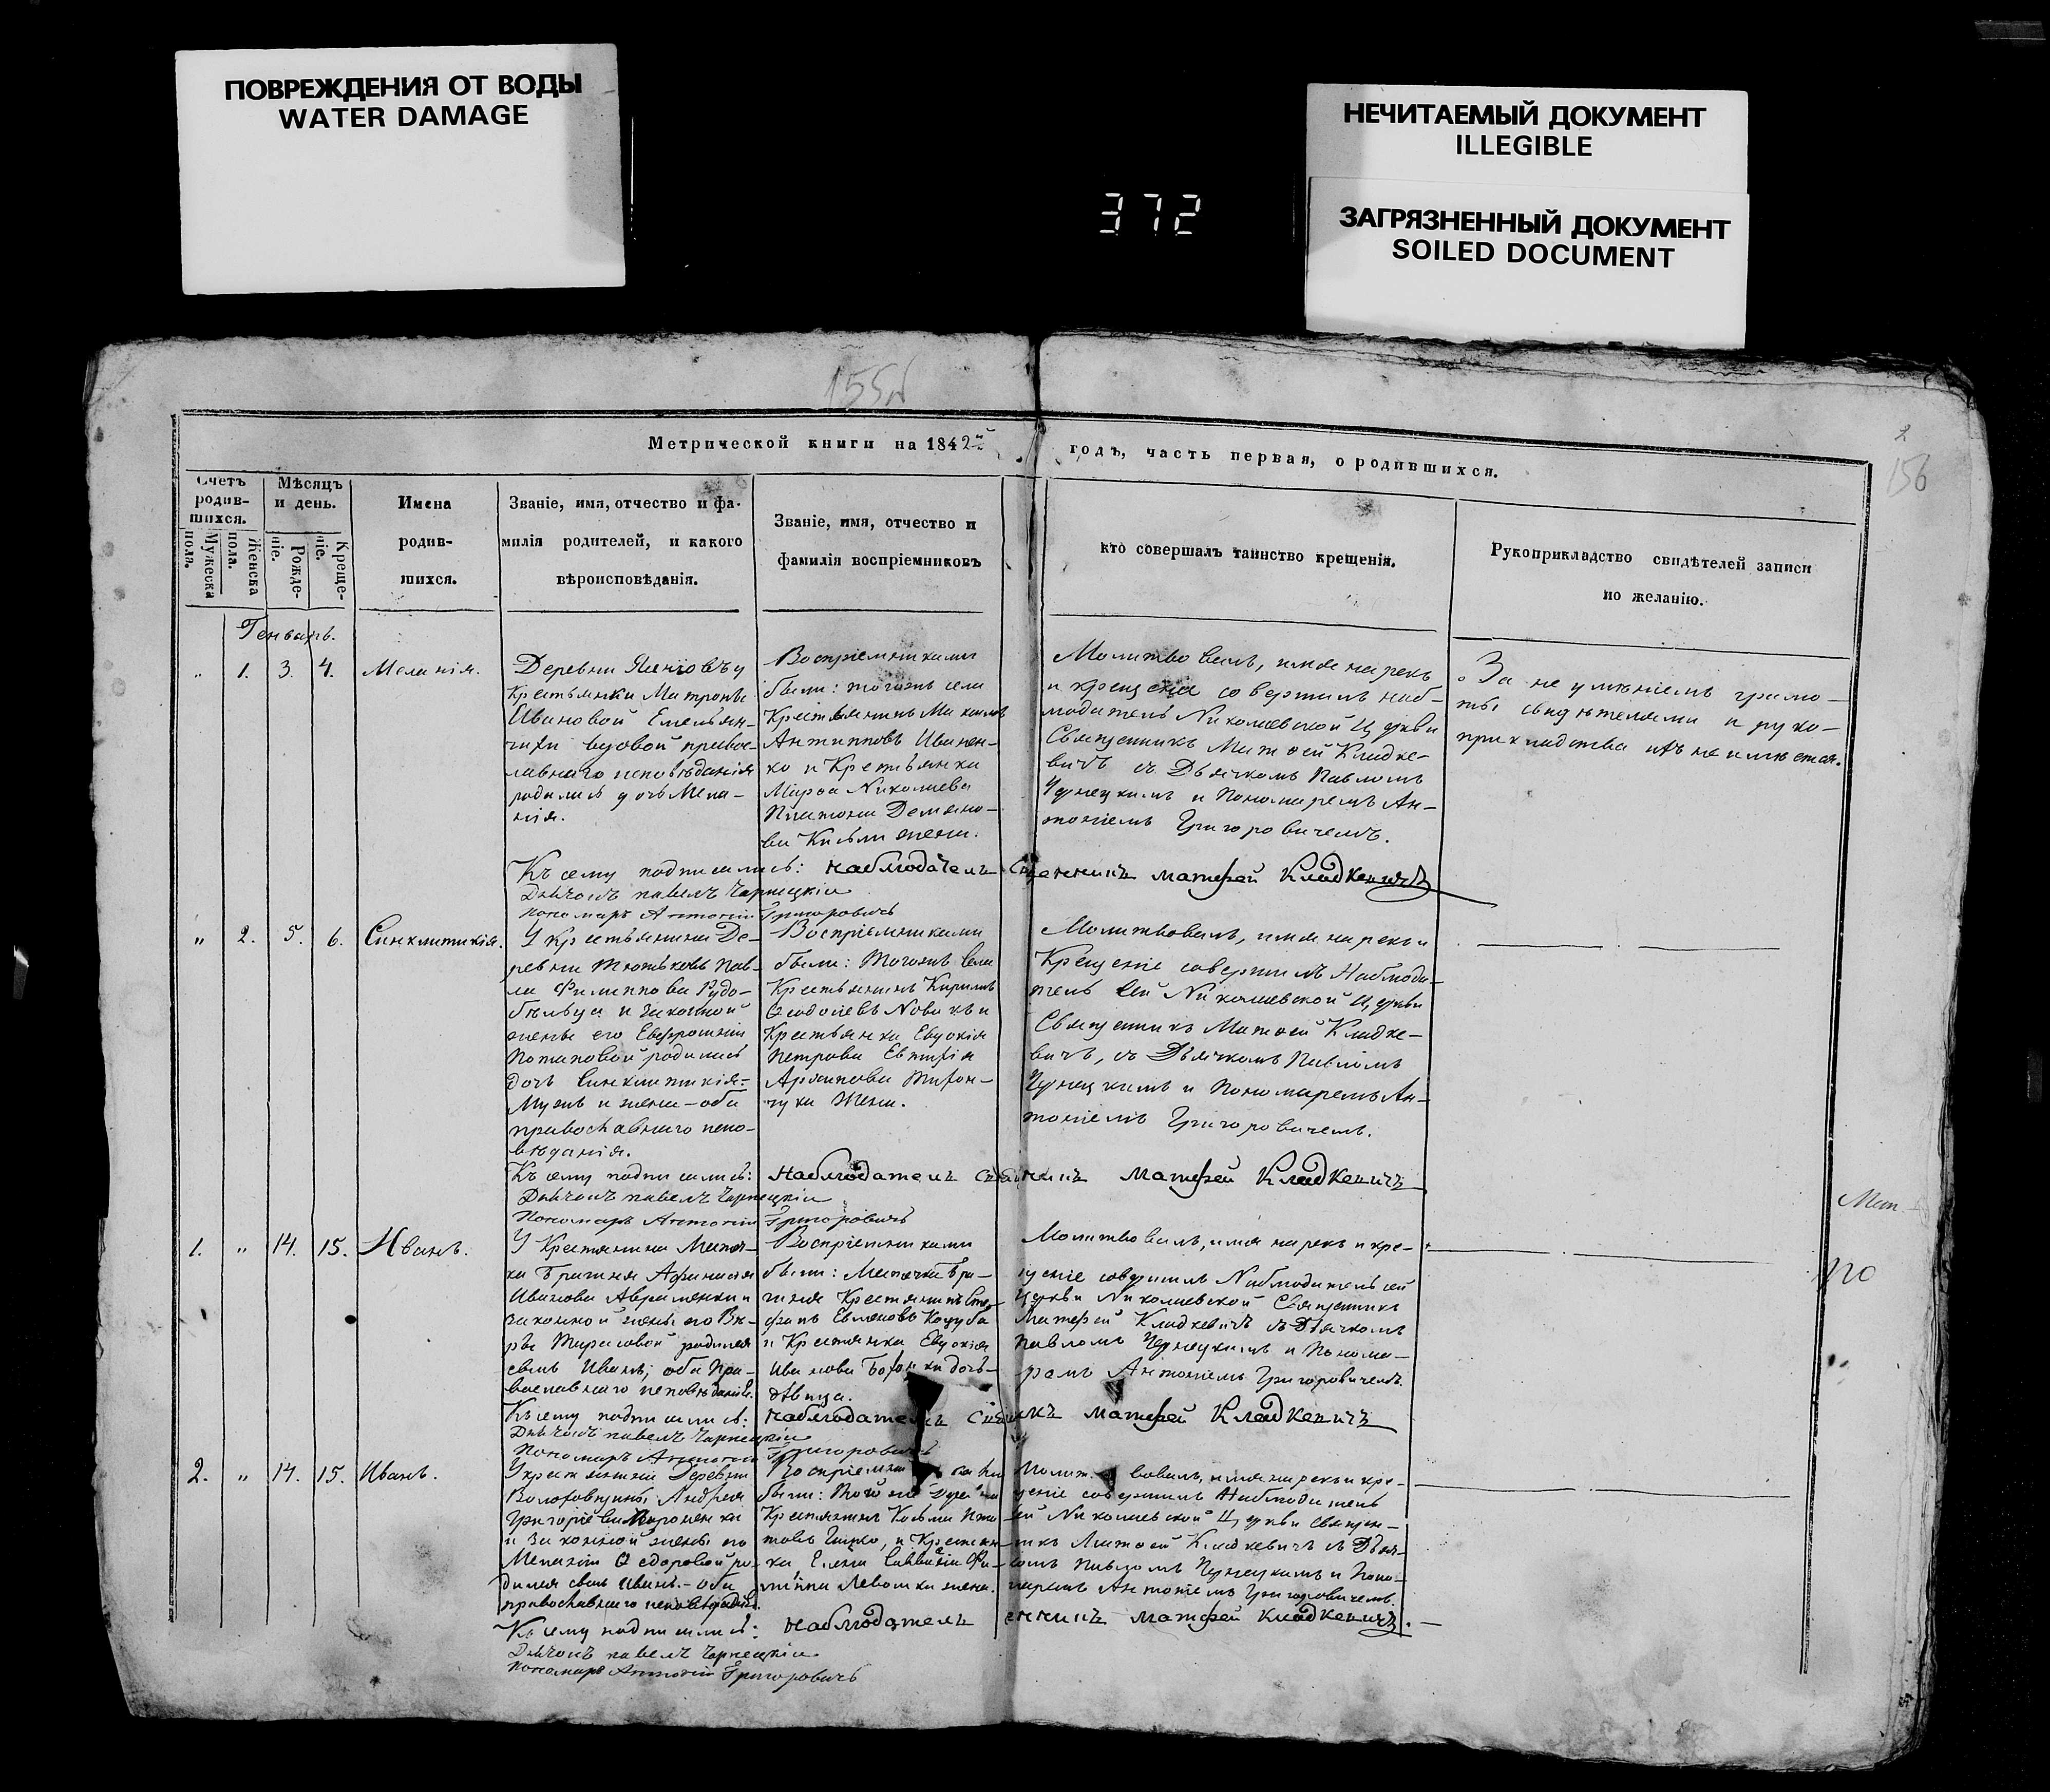 ПОВРЕЖДЕНИЯ ОТ ВОДЫ
WATER DAMAGE
НЕЧИТАЕМЫЙ ДОКУМЕНТ
ILLEGIBLE
372
ЗАГРЯЗНЕННЫЙ ДОКУМЕНТ
SOILED DOCUMENT
2
156
Метрической книги на 1842й годъ, часть первая, о родившихся.
Счетъ родив-шихся.
Мужеска пола.
Женска пола.
Мѣсяцъ и день.
Рожде-ніе.
Креще-ніе.
Имена
родив-
шихся.
Званіе, имя, отчество и фа-
милія родителей, и какого
вѣроисповѣданія.
Званіе, имя, отчество и
фамилія воспріемниковъ
кто совершалъ таинство крещенія.
Рукоприкладство свидѣтелей записи
по желанію.
Генварь.
„ 1. 3. 4. Меланія.
Деревни
Крестьянки
Ивановой
вдовой правос-
лавнаго исповѣданія
родилась дочь Мела-
нія.
Воспріемниками
были: тогожъ села
Крестьянинъ Михаилъ
Антиповъ Иванен-
ко и Крестьянка
Марѳа Николаева
Платона Демяно-
ва жена.
Молитвовалъ, имя нарекъ
и крещеніе совершилъ наб-
людатель Николаевской Церкви
Священникъ Матѳей Кладке-
вичъ съ Дьячкомъ Павломъ
Чернецкимъ и Пономаремъ Ан-
тоніемъ Григоровичемъ.
За не умѣніемъ грамо-
ты свидѣтелями и руко-
прикладства ихъ не имѣется.
Къ сему подписались: наблюдатель Священникъ Матфей Кладкевичъ
Дьячокъ павелъ Чарнецкій
Пономарь Антоній Григоровичъ
„ 2. 5. 6. Синклитикія.
У крестьянина Де-
ревни Пав-
ла Филиппова Рудо-
бѣльца и законной
жены его Евфросиніи
Потаповой родилась
дочь Синклитикія-
Мужъ и жена-оба
православнаго испо-
вѣданія.
Воспріемниками
были: тогожъ села
Крестьянинъ Кирилъ
Новикъ и
Крестьянка Евдокія
Петрова Евтихія
Архипова
жена.
Молитвовалъ, имя нарекъ и
Крещеніе совершилъ Наблюда-
тель сей Николаевской Церкви
Священникъ Матѳей Кладке-
вичъ, съ Дьячкомъ Павломъ
Чернецкимъ и Пономаремъ Ан-
тоніемъ Григоровичемъ.
Къ сему подписались: наблюдатель Священникъ Матфей Кладкевичъ
Дьячокъ павелъ Чарнецкій
Пономарь Антоній Григоровичъ
1. „ 14. 15. Иванъ.
У Крестянина Местеч-
ка Брагиня Афанасія
Иванова Авраменки и
законной жены его Ва-
ры Тарасовой родился
сынъ Иванъ; оба Пра-
вославнаго исповѣданія.
Воспріемниками
были: Местечка Бра-
гиня Крестянинъ Сте-
фанъ Евменовъ Коцуба
и Крестянка Евдокія
Иванова дочь-
дѣвица.
Молитвовалъ, имя нарекъ и кре-
щеніе совершилъ Наблюдатель сей
Церкви Николаевской Священникъ
Матѳей Кладкевичъ съ Дьячкомъ
Павломъ Чернецкимъ и Понома-
ремъ Антоніемъ Григоровичемъ.
Къ сему подписались: наблюдатель Священникъ Матфей Кладкевичъ
Дьячокъ павелъ Чарнецкій
Пономарь Антоній Григоровичъ
2. „ 14. 15. Иванъ.
У крестянина Деревни
Андрея
Григоріева
и Законной жены его
Меланіи Ѳедоровой ро-
дился сынъ Иванъ.-оба
православнаго исповѣданія.
Воспріемниками
были: той же Деревни
Крестянинъ Козьма
и Крестян-
ка Елена
жена.
Молитвовалъ, имя нарекъ и кре-
щеніе совершилъ Наблюдатель
сей Николаевской Церкви Священ-
никъ Матѳей Кладкевичъ съ Дьяч-
комъ Павломъ Чернецкимъ и Поно-
маремъ Антоніемъ Григоровичемъ.
Къ сему подписались: наблюдатель Священникъ Матфей Кладкевичъ.
Дьячокъ павелъ Чарнецкій
Пономарь Антоній Григоровичъ